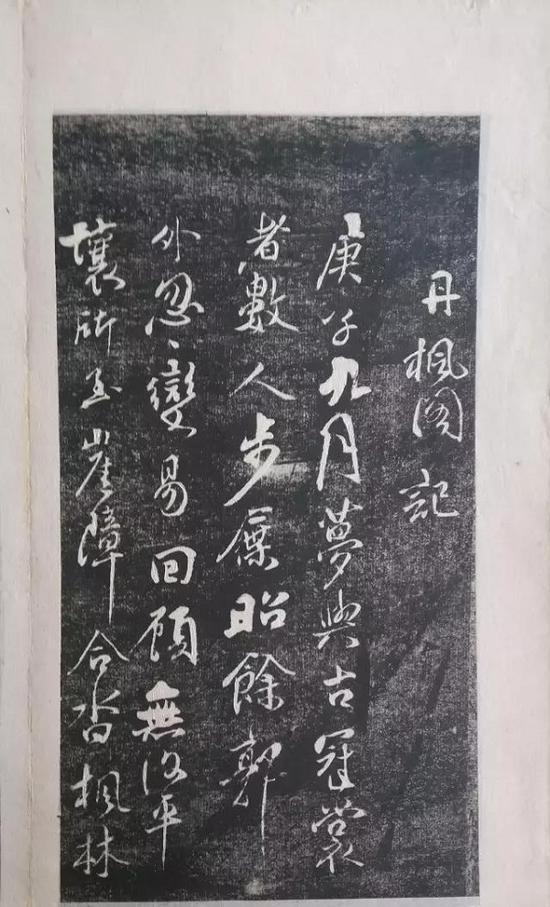 丹楓阁記
庚子九月夢與古冠裳
者數人步屧昭餘郭
外忽〻變易回顧無復平
壤所至崖障合沓楓林